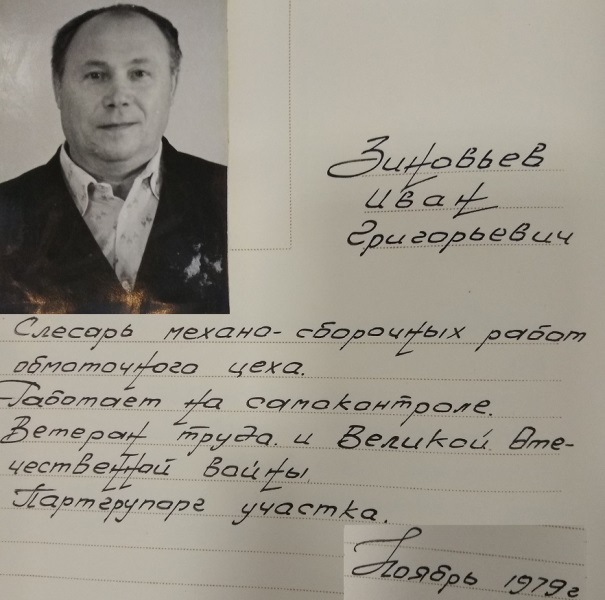 Зиновьев
Иван
Григорьевич
Слесарь механо-сборочных работ
обмоточного цеха.
Работает на самоконтроле.
Ветеран труда и Великой Оте-
чественной войны.
Партгрупорг участка.
Ноябрь 1979г